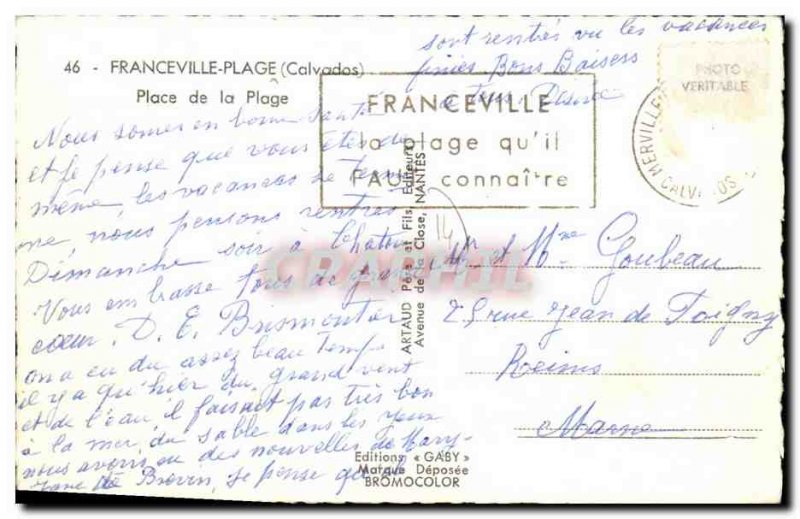 46 - FRANCEVILLE-PLAGE (Calvados)
Place de la Plage
sont rentrés vu les vacances
finies Bons Baisers
à tous Désiré
PHOTO
VERITABLE
FRANCEVILLE
la plage qu'il
FAUT connaître
MERVILLE
CALVADOS
Nous somes en bonne santé
et je pense que vous êtes de
même, les vacances se termi
ne, nous pensons rentrer
Dimanche soir à Chatou
Vous embrasse tous de grand
coeur. D. E. Brismontier
on a eu du assez beau temps
il y a qu'hier du grand vent
et de l'eau, il faisait pas très bon
à la mer, du sable dans les yeux
nous avons eu des nouvelles de Mary-
de je pense que
ARTAUD Père et Fils, Editeurs
Avenue de la Close, NANTES
14
CPAPHIL
Mr et Mme Goubeau
25 rue Jean de Joigny
Reims
Marne
Editions « GABY »
Marque Déposée
BROMOCOLOR